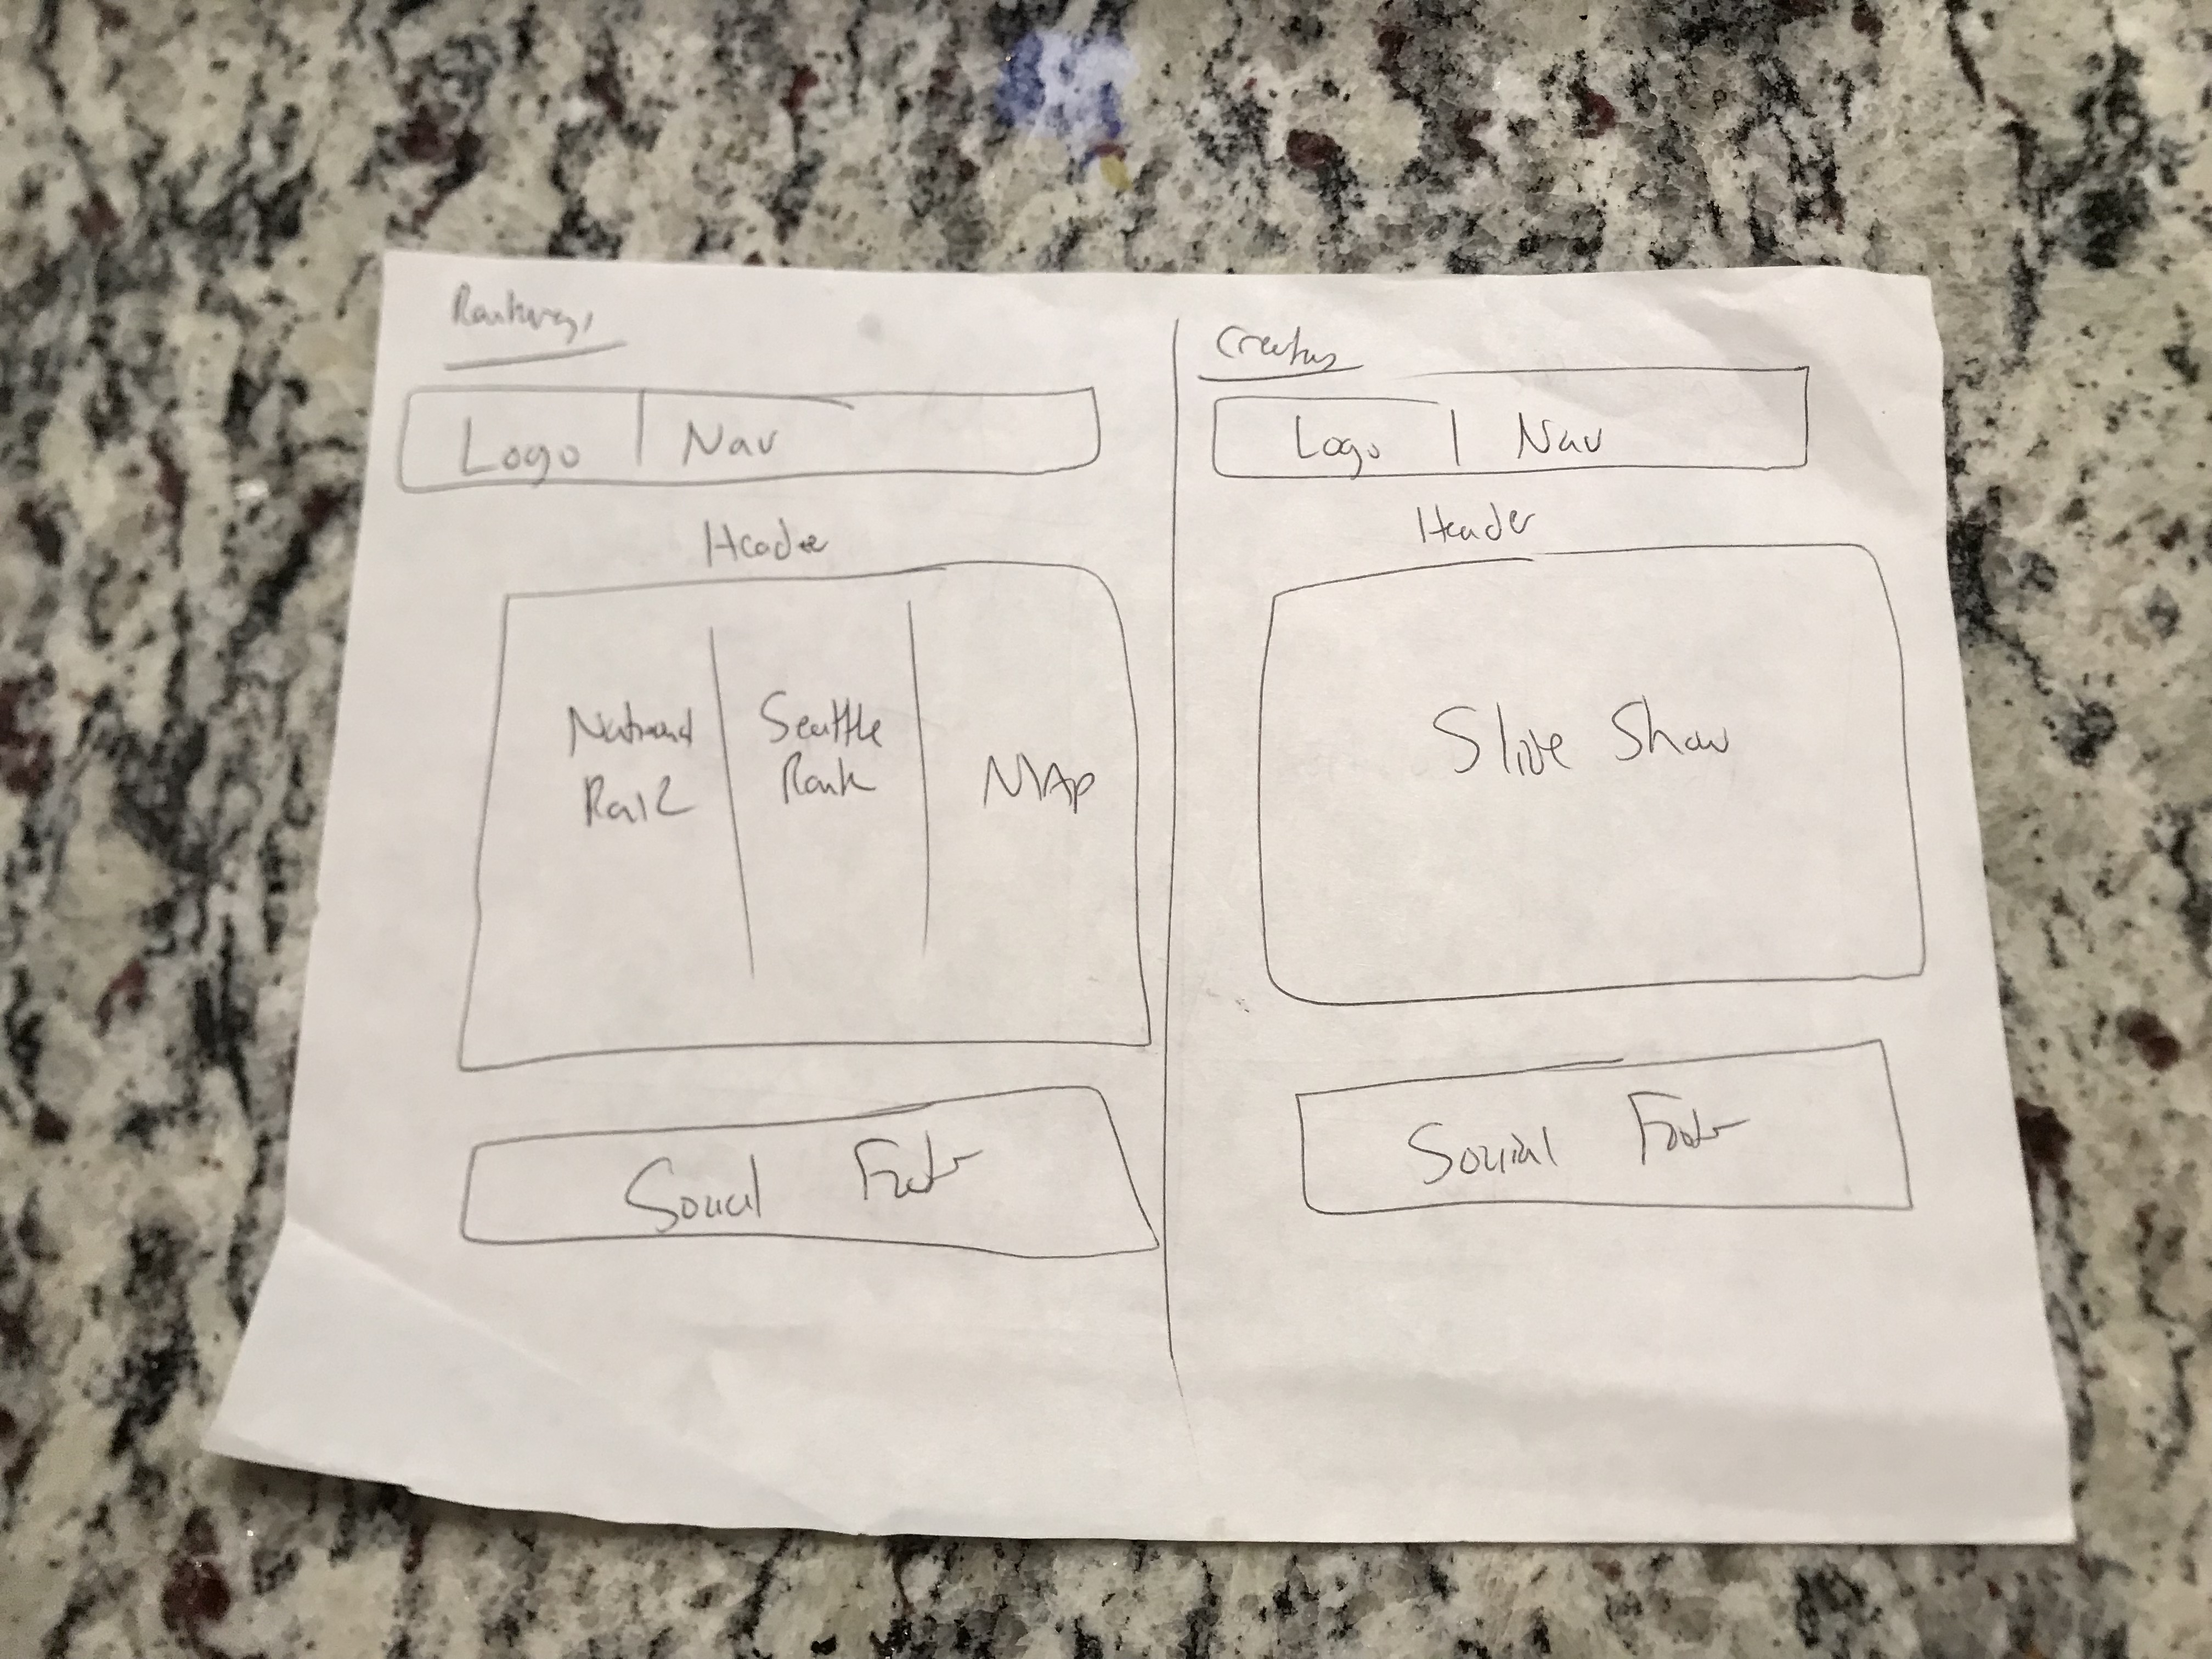 Rankings
Logo | Nav
Header
National
Rank
Seattle
Rank
MAp
Social Footer
Logo | Nav
Header
Slide Show
Social Footer